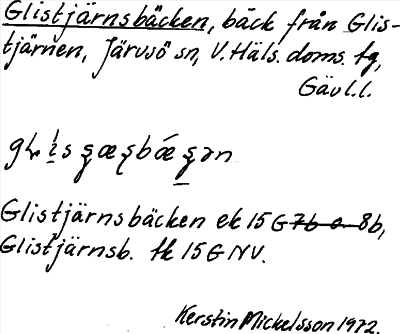 Glistjärnsbäcken, bäck från Glis-
tjärnen, Järvsö sn, V. Häls. doms. tg,
Gävl.l.
Glistjärnsbäcken ek 15 G 7b o 8b,
Glistjärnsb. tk 15 G NV.
Kerstin Mickelsson 1972.